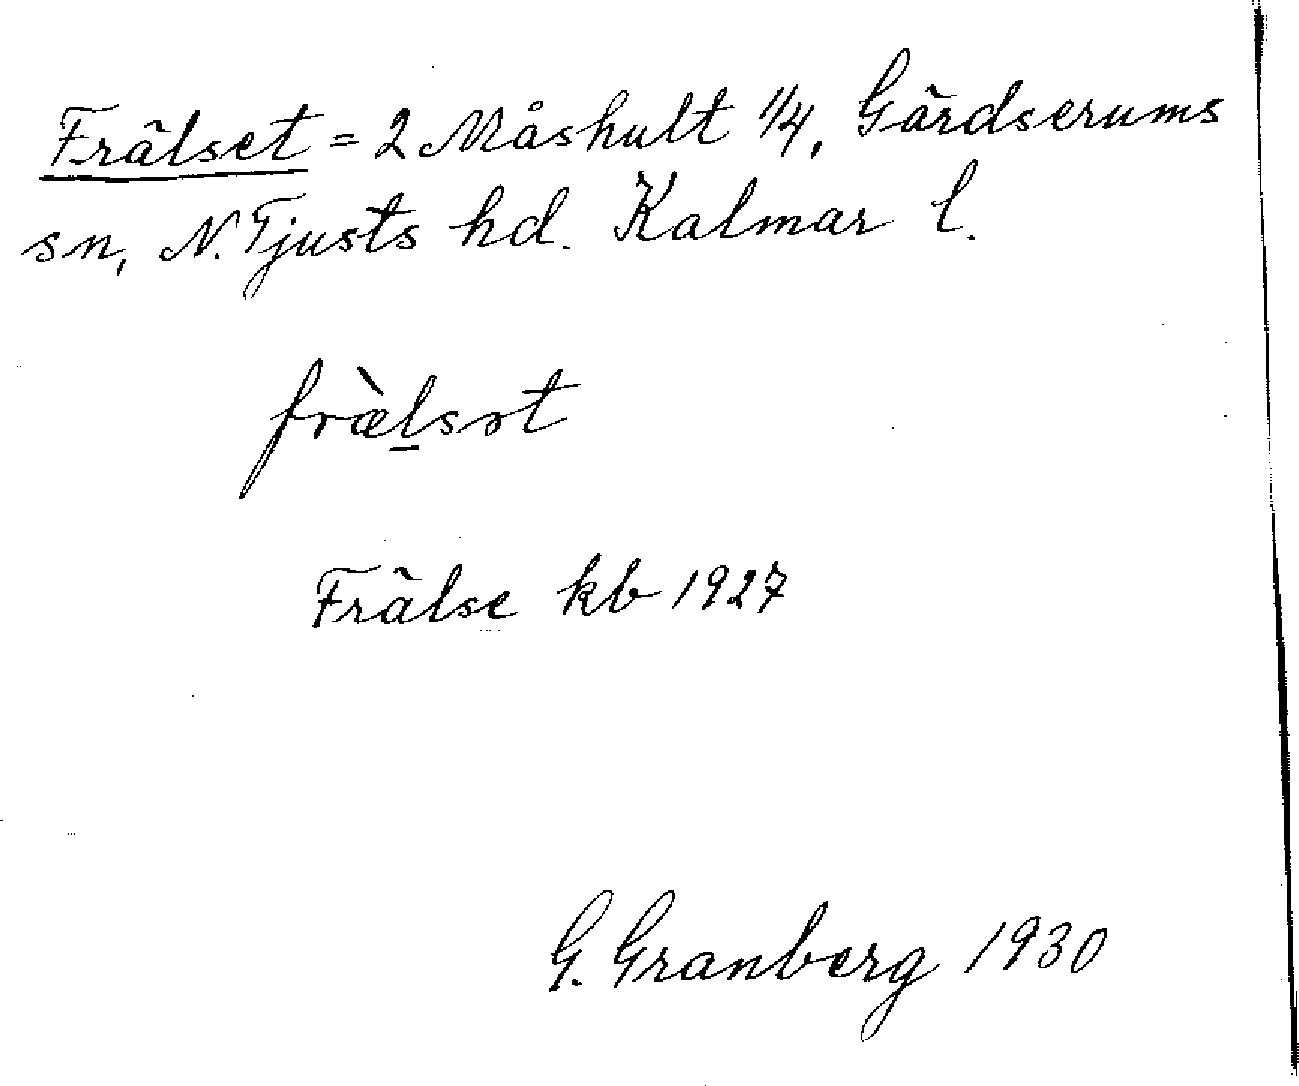 Frälset = 2 Måshult 1/4, Gärdserums
sn, N. Tjusts hd. Kalmar l.
fræ̀l̠sət
Frälse kb 1927
G. Granberg 1930